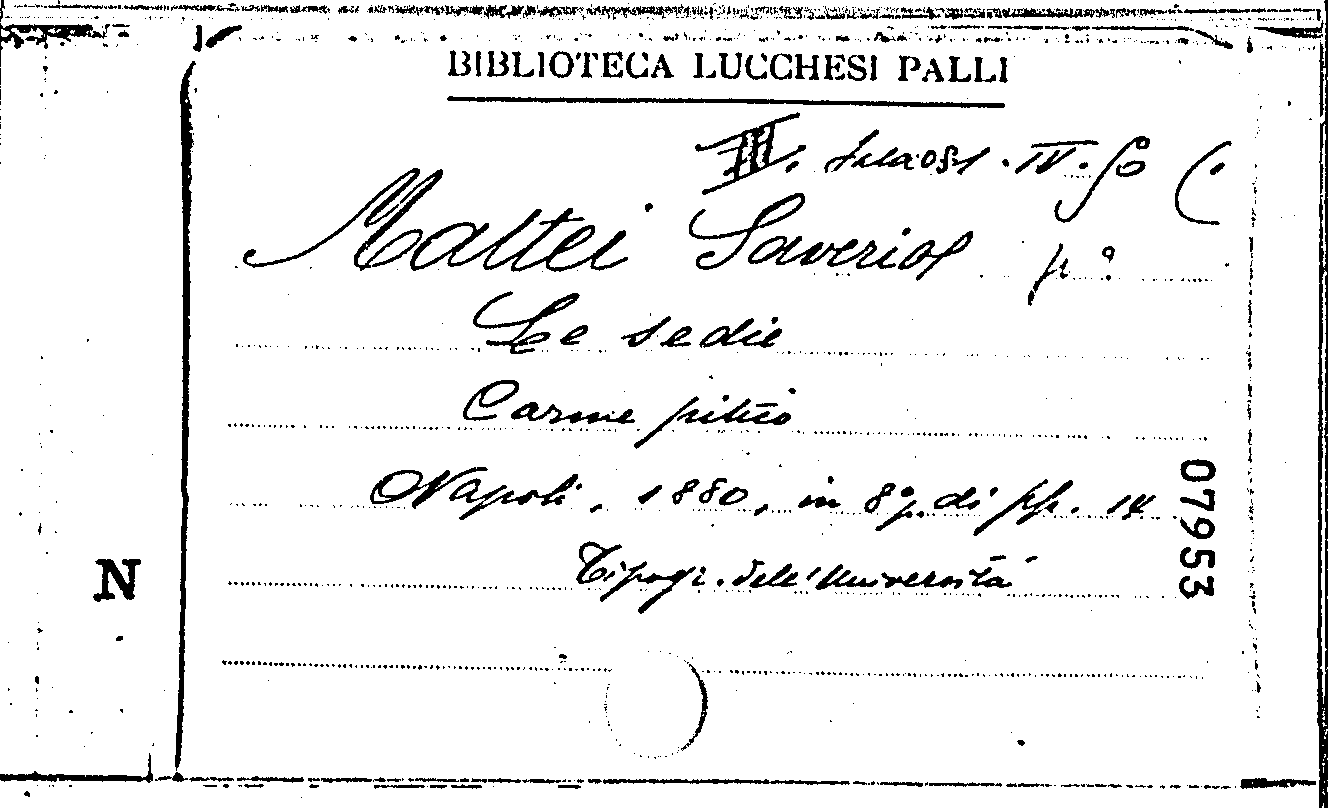 BIBLIOTECA LUCCHESI PALLI
III. IV.
Mattei Saverio
Le sedie
Carme
Napoli, 1880, in 8º, di pp. 14
Tipogr. dell'Università
07953
N